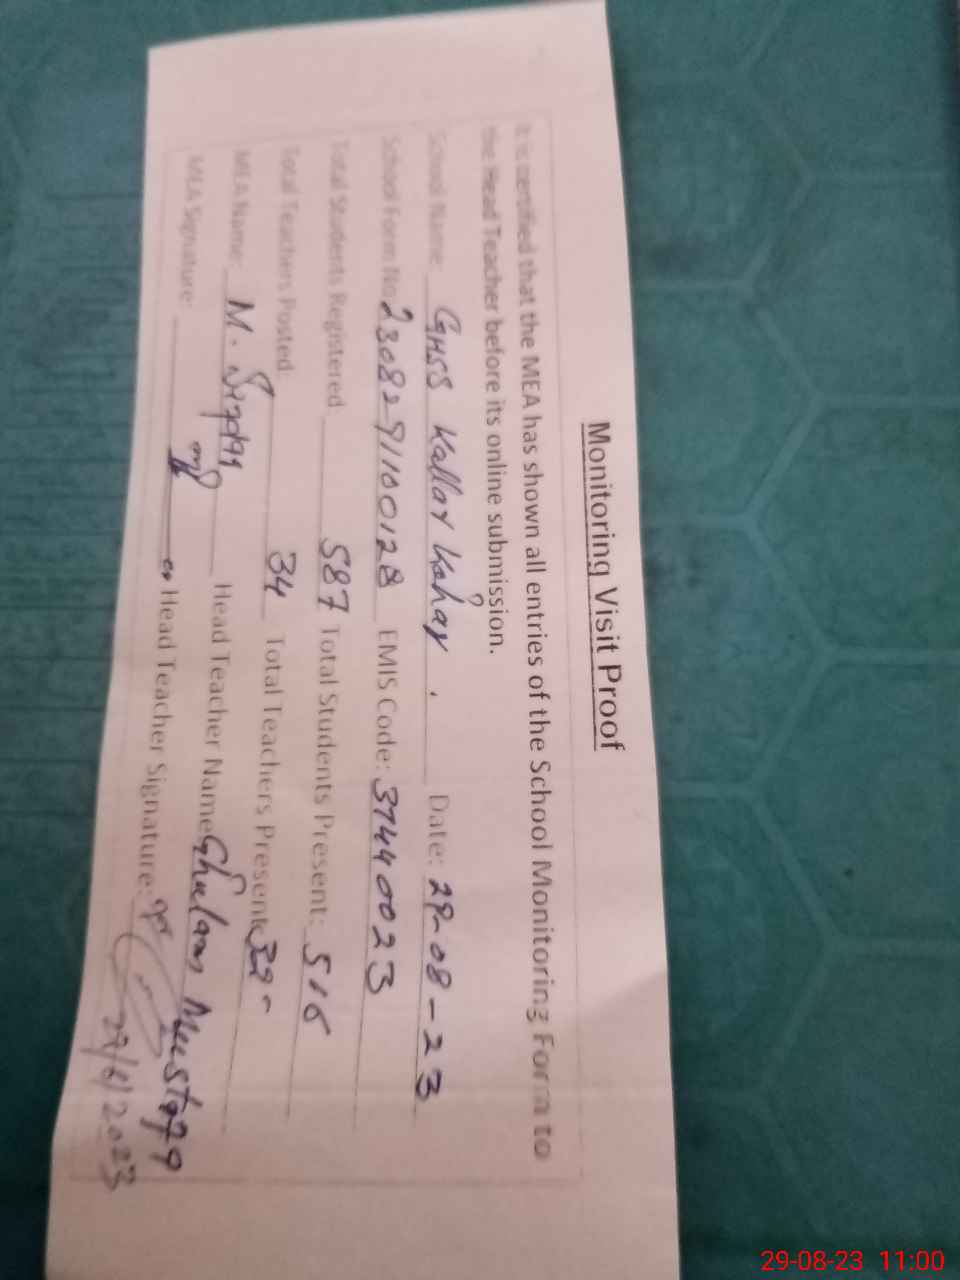 Monitoring Visit Proof
It is certified that the MEA has shown all entries of the School Monitoring Form to
the Head Teacher before its online submission.
School Name: GHSS Kallar Kahar. Date: 29-08-23
School Form No 2308291100128 EMIS Code: 37440023
Total Students Registered 587 Total Students Present: 516
Total Teachers Posted: 34 Total Teachers Present:
MEA Name: M. Head Teacher Name Ghulam Mustafa
MEA Signature: Head Teacher Signature:
29-08-23 11:00